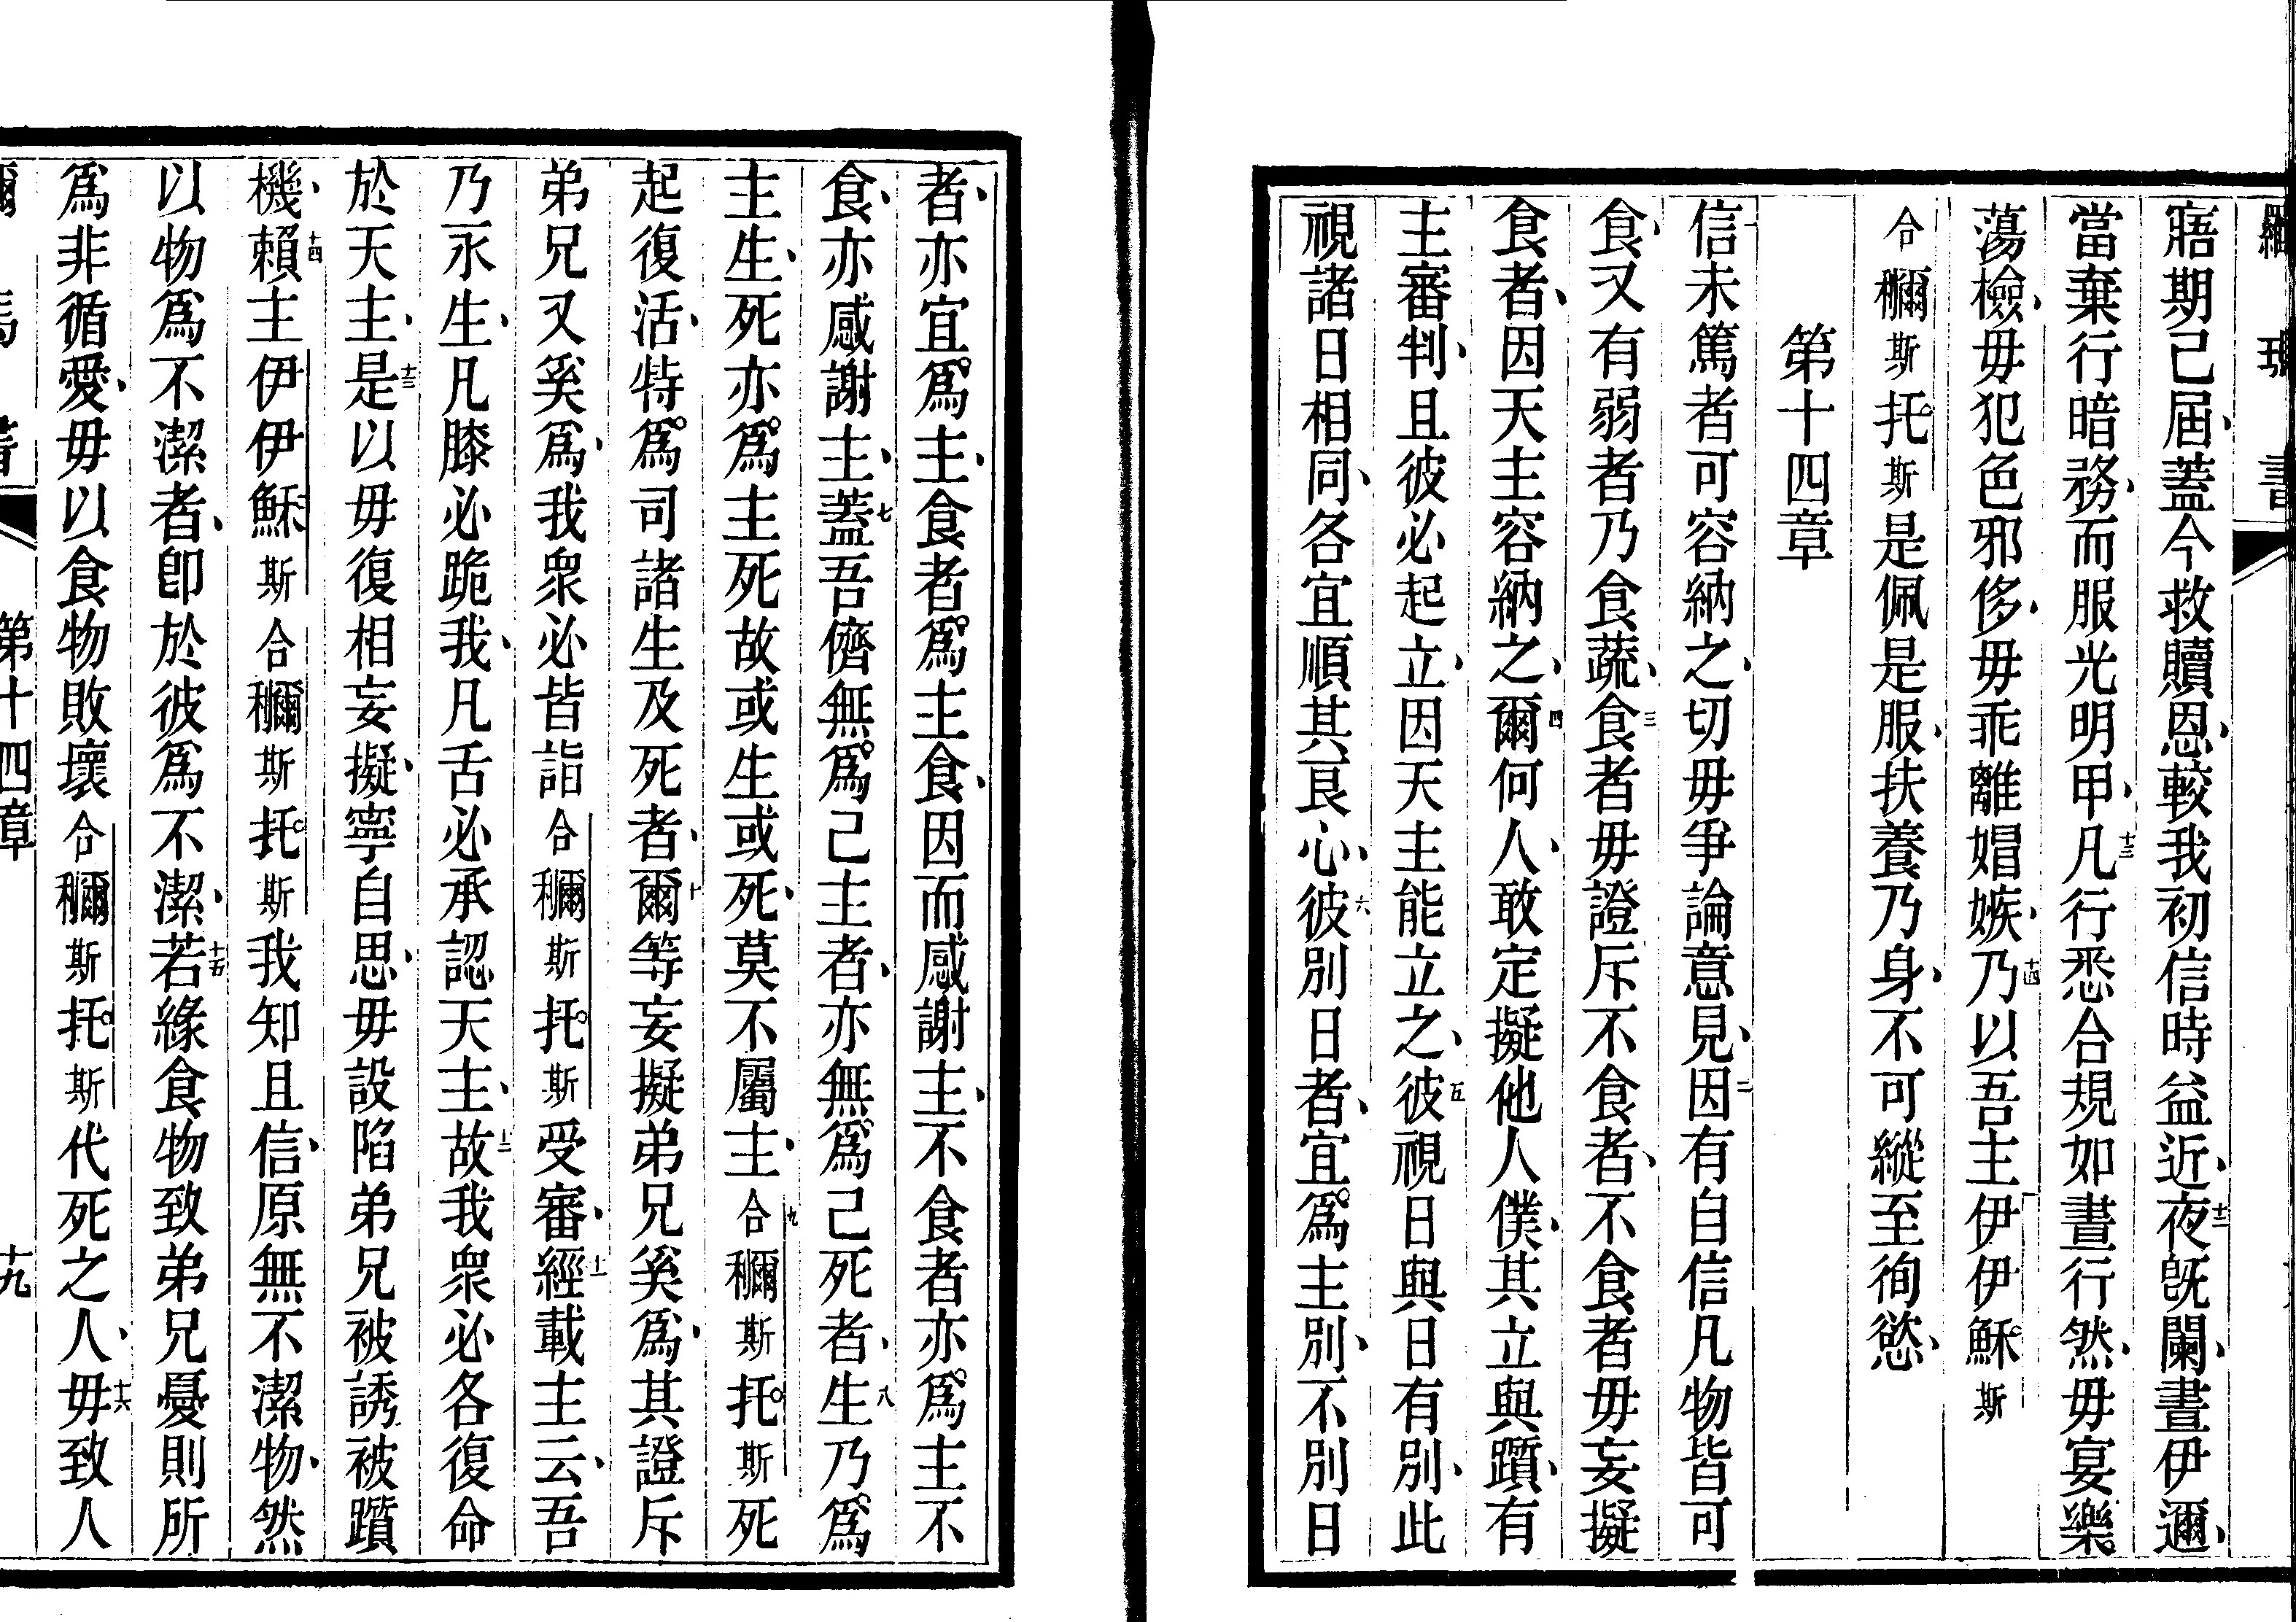 羅瑪書
寤期已屆、蓋今救贖恩、較我初信時益近、十二夜旣闌、晝伊邇、
當棄行暗務、而服光明甲、十三凡行悉合規如晝行然、毋宴樂
蕩檢、毋犯色邪侈、毋乖離媢嫉、十四乃以吾主伊伊穌斯
合穪斯托斯是佩是服、扶養乃身、不可縱至徇慾、
第十四章
一信未篤者可容納之、切毋爭論意見、二因有自信凡物皆可
食、又有弱者乃食蔬、三食者毋證斥不食者、不食者毋妄擬
食者、因天主容納之、四爾何人、敢定擬他人僕、其立與躓、有
主審判、且彼必起立、因天主能立之、五彼視日與日有別、此
視諸日相同、各宜順其良心、六彼別日者、宜爲主別、不別日
者、亦宜爲主、食者爲主食、因而感謝主、不食者亦爲主不
食、亦感謝主、七蓋吾儕無爲己主者、亦無爲己死者、八生乃爲
主生、死亦爲主死故或生或死、莫不屬主、九合穪斯托斯死
起復活、特爲司諸生及死者、十爾等妄擬弟兄奚爲、其證斥
弟兄又奚爲、我衆必皆詣合穪斯托斯受審、十一經載主云、吾
乃永生、凡膝必跪我、凡舌必承認天主、十二故我衆必各復命
於天主、十三是以毋復相妄擬、寧自思、毋設陷弟兄被誘被躓
機、十四賴主伊伊穌斯合穪斯托斯我知且信、原無不潔物、然
以物爲不潔者、卽於彼爲不潔、十五若緣食物致弟兄憂則所
爲非循愛、毋以食物敗壞合穪斯托斯代死之人、十六毋致人
第十四章 十九